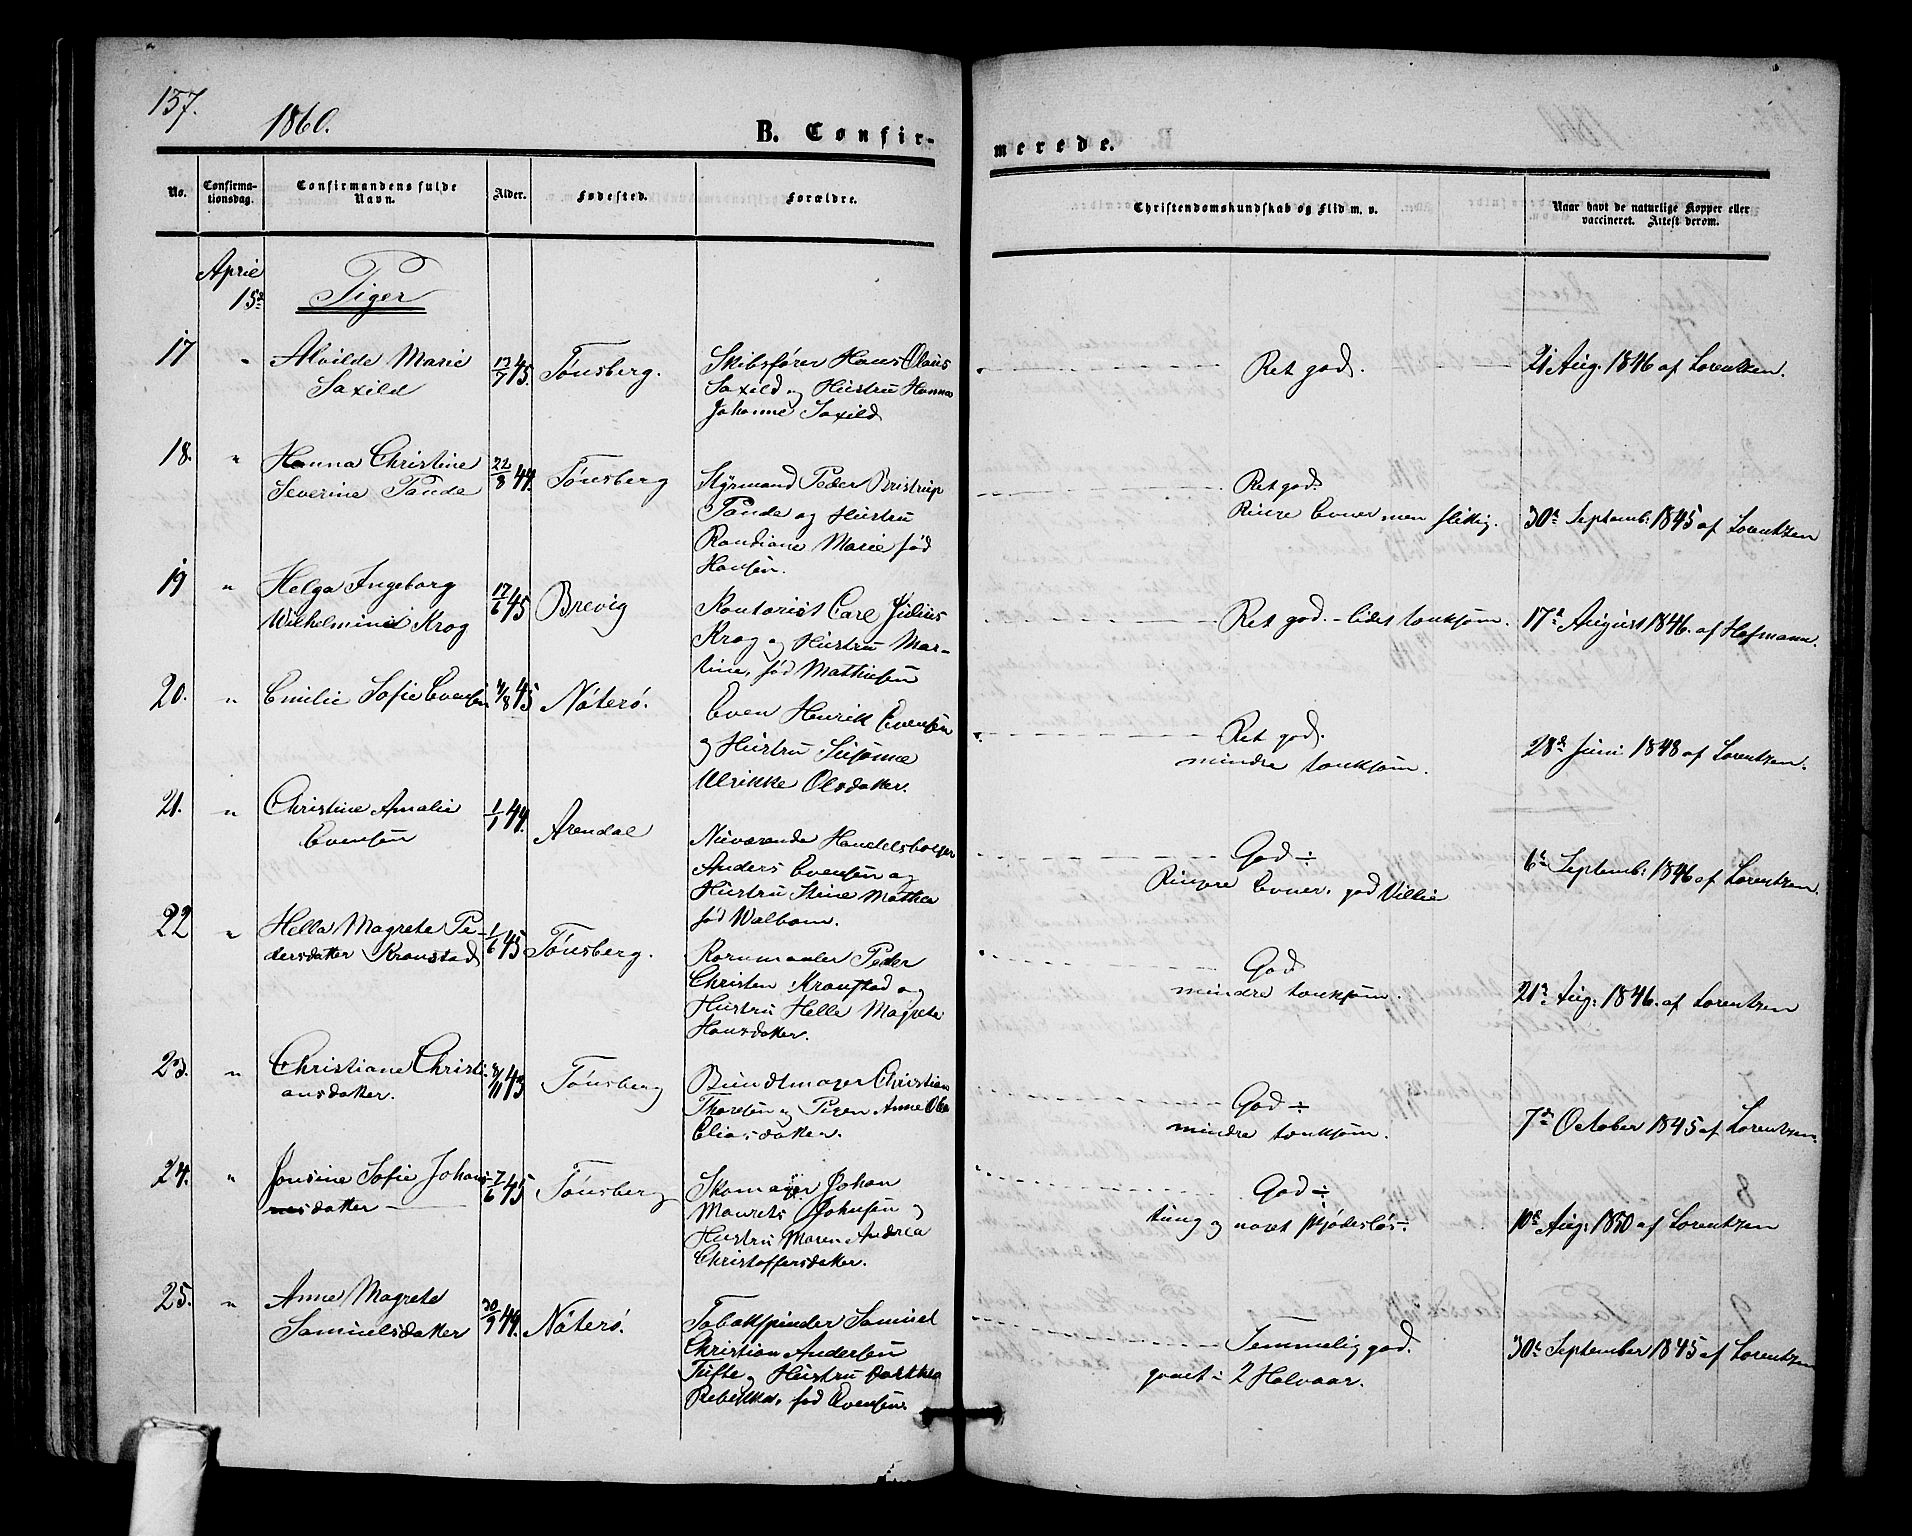 157.
1860.
B. Confir-
merede.
No.
Confirma-
tionsdag.
Confirmandens fulde
Navn.
Alder.
Fødested.
Forældre.
Christendomskundskab og Flid m. v.
Naar havt de naturlige Kopper eller
vaccineret. Attest derom.
April
15de
Piger
17
"
Alvilde Marie
Saxild
13/7 45.
Tønsberg.
Skibsfører Hans Olaus
Saxild og Hustru Hanna
Johanne Saxild
Ret god.
21 Aug. 1846 af Lorentzen.
18.
"
Hanna Christine
Severine Tande
22/8 44.
Tønsberg
Styrmand Peder Bristrup
Tande og Hustru
Randiane Marie fød
Hansen.
Ret god.
Ringe Evner men flittig.
30te Septemb: 1845 af Lorentzen
19
"
Helga Ingeborg
Wilhelmine Krog
17/6 45
Brevig
Kontorist Carl Julius
Krog og Hustru Mar-
tine, fød Mathiesen
Ret god. - lidet tænksom.
17de August 1846. af Hofmann.
20.
"
Emilie Sofie Evensen
4/8 45
Nøterø.
Even Henrik Evensen
og Hustru Susanne
Ulrikke Olsdatter.
Ret god.
mindre tænksom.
28de Juni 1848 af Lorentzen.
21.
"
Christine Amalie
Evensen
1/1 44.
Arendal
Nuværende Handelsborger
Anders Evensen og
Hustru Stine Mathea
fød Walbom.
God ÷
Ringere Evner, god Villie
6te Septemb: 1846 af Lorentzen.
22
"
Helle Magrete Pe-
dersdatter Kronstad
1/6 45
Tønsberg.
Kornmaaler Peder
Christen Kronstad og
Hustru Helle Magrete
Hansdatter.
God
mindre tænksom.
21de Aug: 1846. af Lorentzen
23.
"
Christiane Christi-
ansdatter.
8/11 43
Tønsberg
Bundtmager Christian
Thoresen og Pigen Anne Olea
Eliasdatter.
God ÷
mindre tænksom.
7de October 1845 af Lorentzen.
24.
"
Jonsine Sofie Johan-
nesdatter
7/6 45
Tønsberg
Skomager Johan
Maurits Johnsen og
Hustru Maren Andrea
Christoffersdatter.
God ÷
tung og noget skjødesløs.
10de Aug: 1850 af Lorentzen
25.
"
Anne Magrete
Samuelsdatter
30/9 44.
Nøterø.
Tobakspinder Samuel
Christian Andersen
Tufte og Hustru Dorthea
Rebekka, fød Evensen.
Temmelig god.
gaaet i 2 Halvaar.
30te September 1845 af Lorentzen